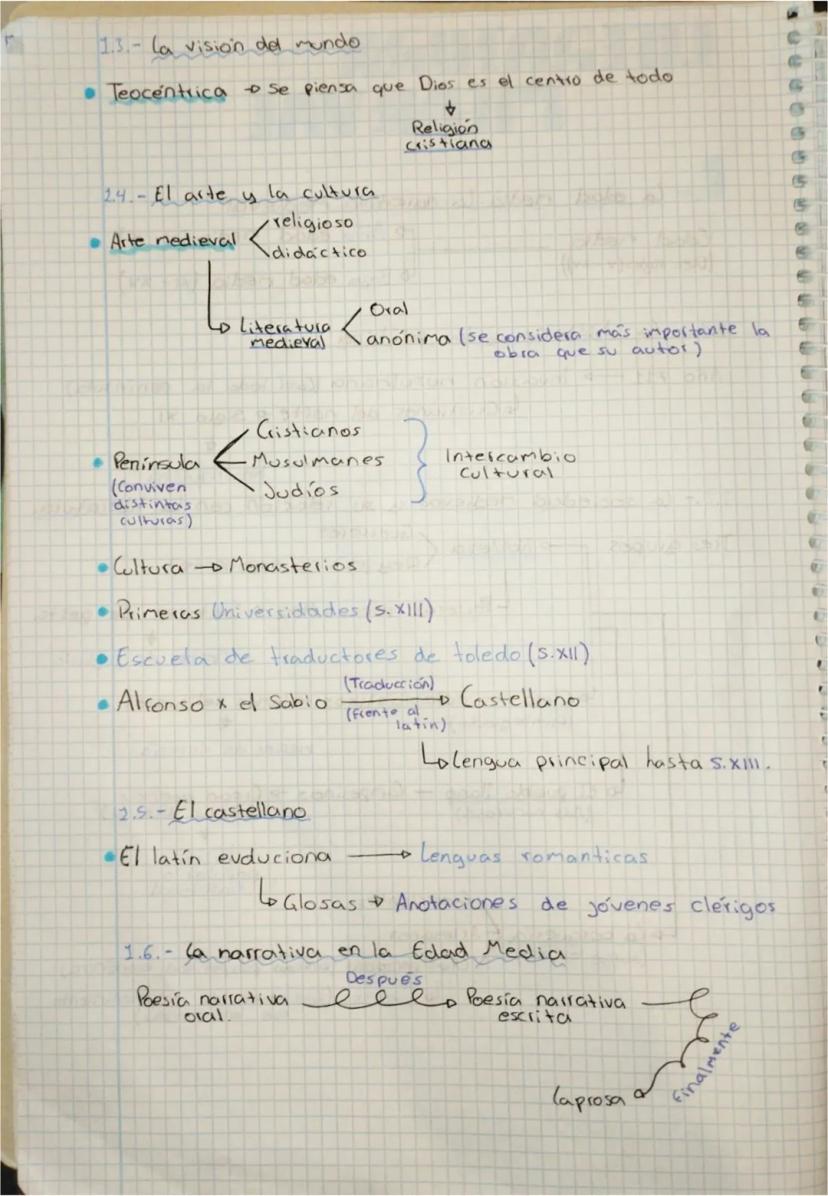 1.3.- La visión del mundo
• Teocéntrica → Se piensa que Dios es el centro de todo
↓
Religión
cristiana
1.4.- El arte y la cultura
religioso
• Arte medieval
didáctico
Oral
↳ Literatura
medieval
anónima (se considera más importante la
obra que su autor)
Cristianos
• Península
Musulmanes
Intercambio
cultural
(Conviven
distintas
culturas)
Judíos
• Cultura → Monasterios
• Primeras Universidades (s.XIII)
• Escuela de traductores de toledo (s.XII)
(Traducción)
• Alfonso x el Sabio → Castellano
(Frente al
latín)
↳ Lengua principal hasta s.XIII.
1.5.- El castellano
• El latín evduciona → Lenguas romanticas
↳ Glosas → Anotaciones de jóvenes clérigos
1.6.- La narrativa en la Edad Media
Después
Poesía narrativa
oral.
→ Poesía narrativa
escrita
Finalmente
la prosa